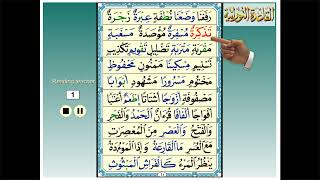 القاعدة النورانية
رَفَعْنَا وَضَعْنَا نُطْفَةٍ عِبْرَةٌ زَجْرَةٌ
تَذْكِرَةٌ مُسْفِرَةٌ مُؤْصَدَةٌ مَسْغَبَةٍ
مَقْرَبَةٍ مَتْرَبَةٍ تَضْلِيلٍ تَقْوِيمٍ تَكْذِيبٍ
تَسْنِيمٍ مِسْكِينًا مَمْنُونٍ مَحْفُوظٍ
مَخْتُومٍ مَسْرُورًا مَشْهُودٍ أَبْوَابًا
مَصْفُوفَةٌ أَزْوَاجًا أَشْتَاتًا إِطْعَامٌ أَعْنَابًا
أَفْوَاجًا أَلْفَافًا قُرْءَانٌ الْحَمْدُ وَالْفَجْرِ
وَالْفَتْحُ وَالْعَصْرِ مِنَ الْمُعْصِرَاتِ
مَعَ الْعُسْرِ مَا الْقَارِعَةُ وَإِذَا الْمَوْءُودَةُ
يَنْظُرُ الْمَرْءُ كَالْفَرَاشِ الْمَبْثُوثِ
Reading number
1